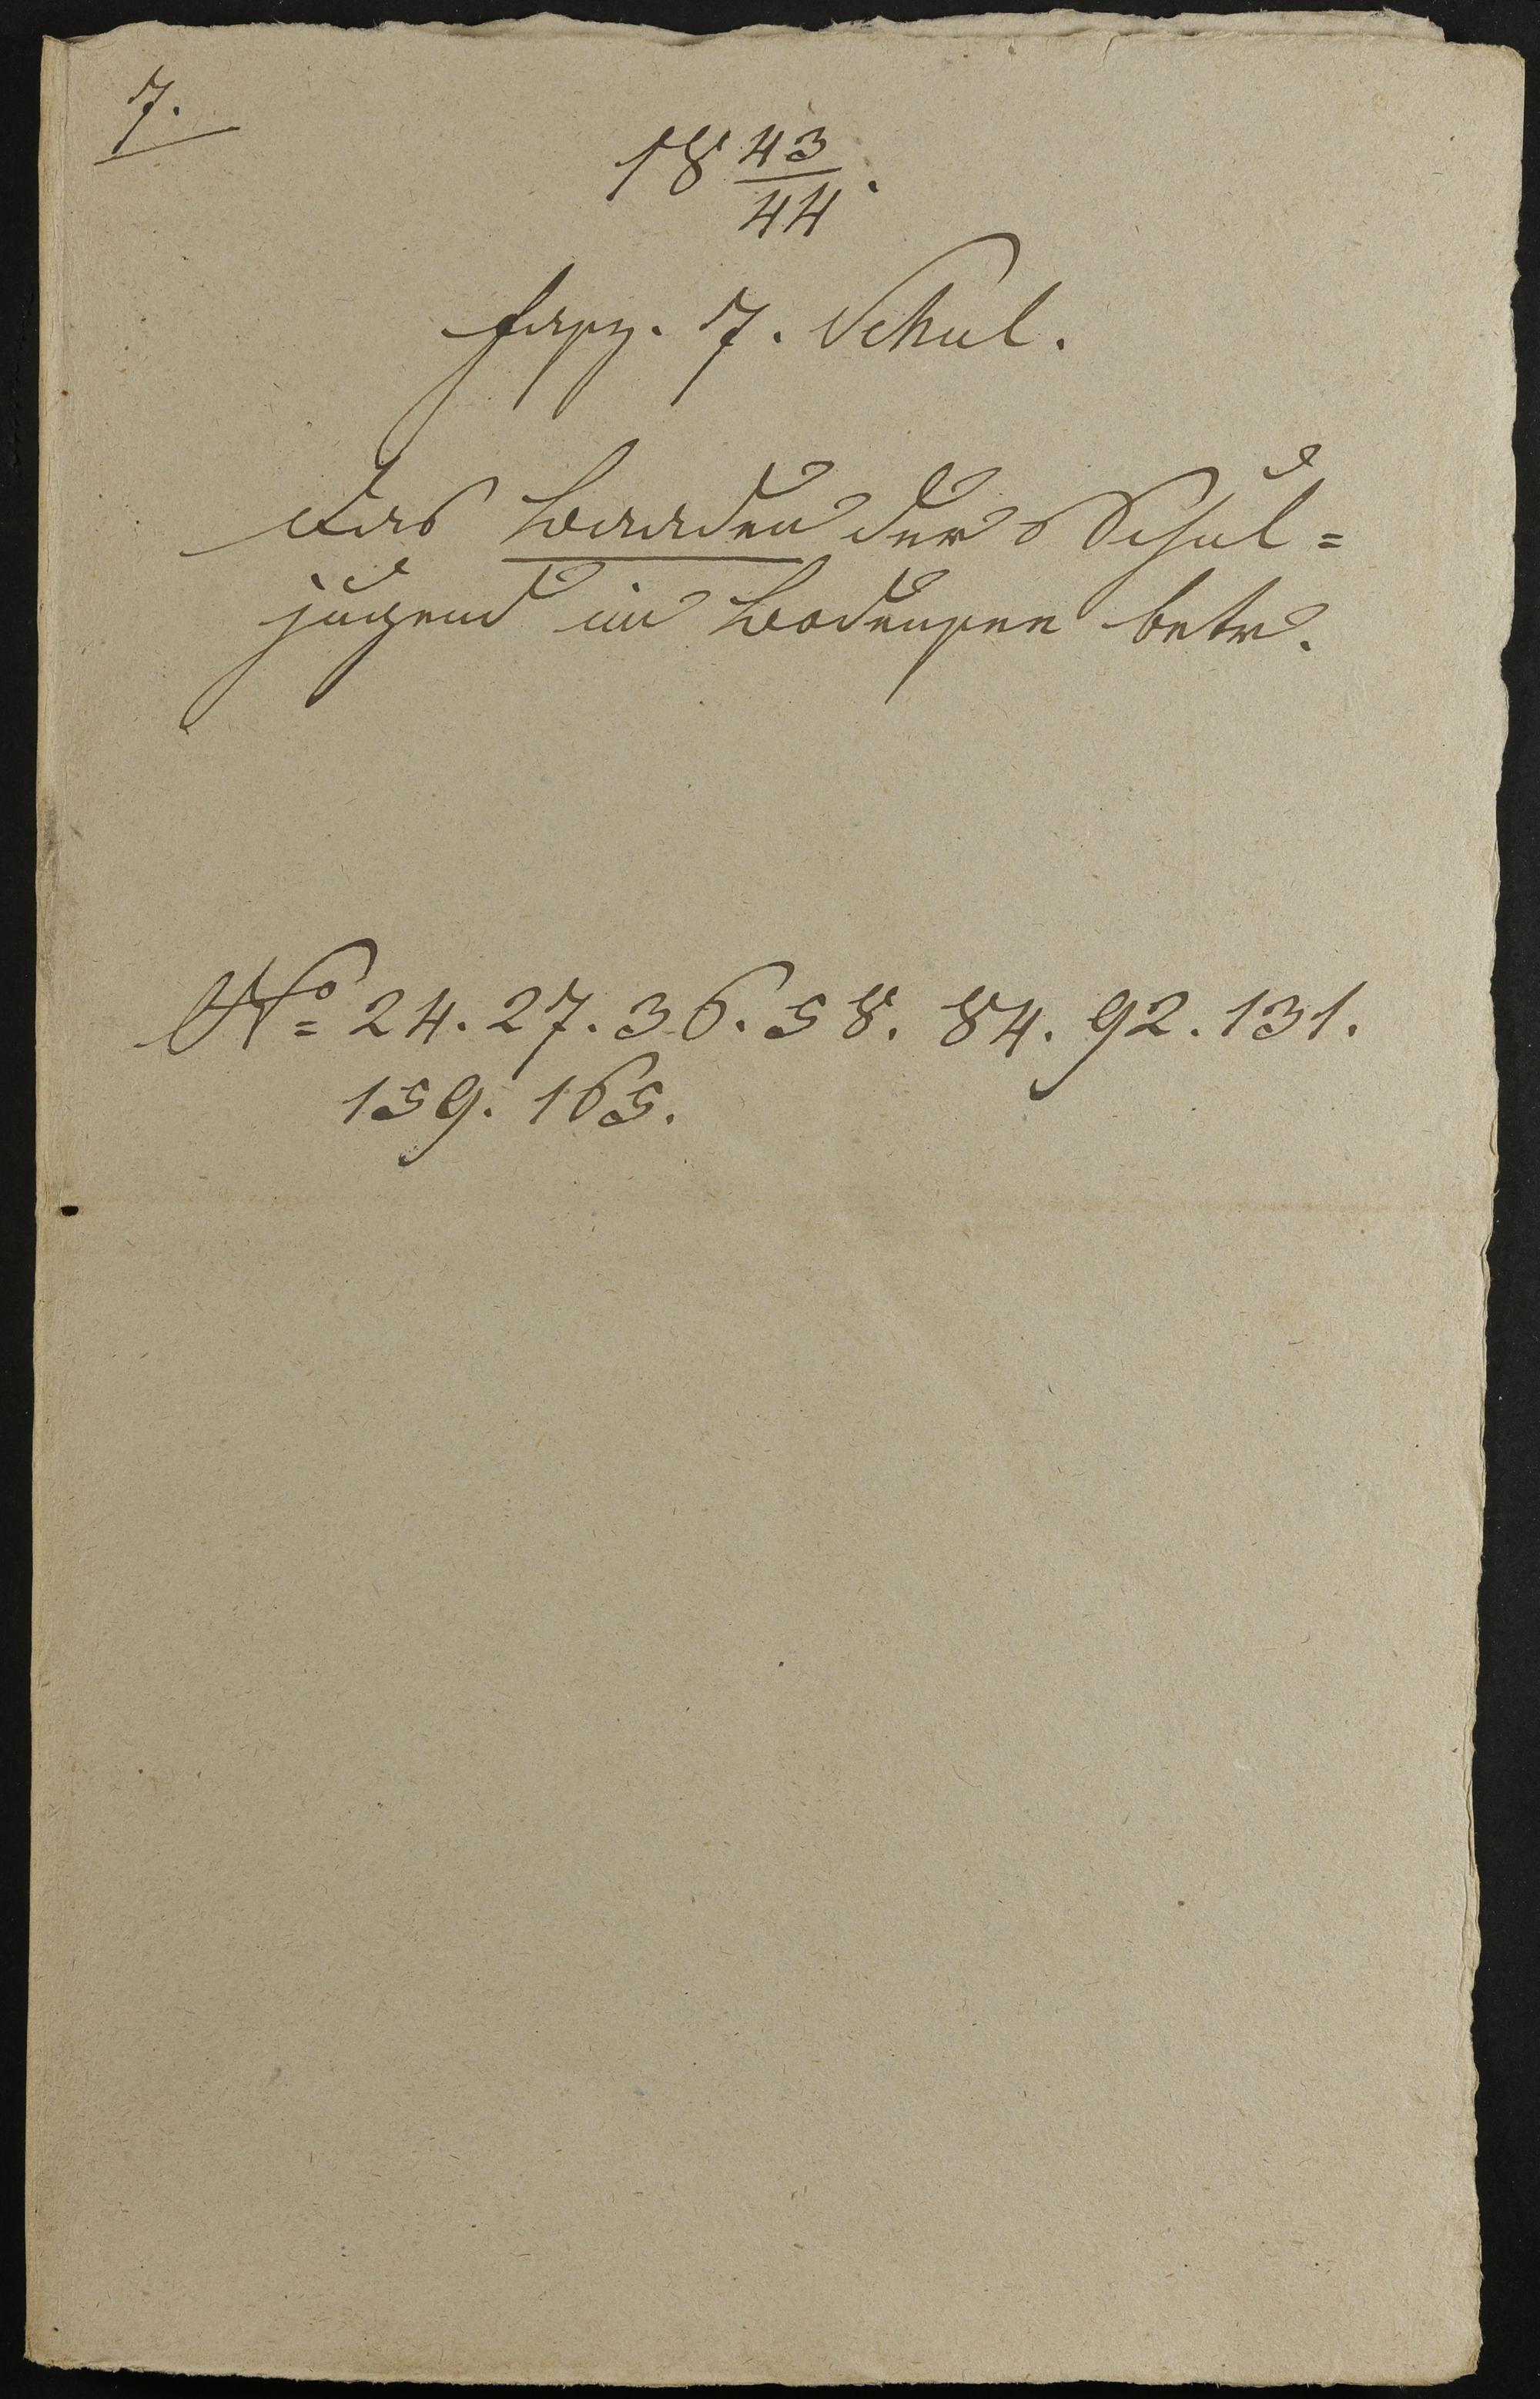 7.
18 43/44.
fasz. 7. Schul.
das Baaden der Schul=
jugend im Bodensee betr.
No 24. 27. 36. 58. 84. 92. 131.
159. 165.